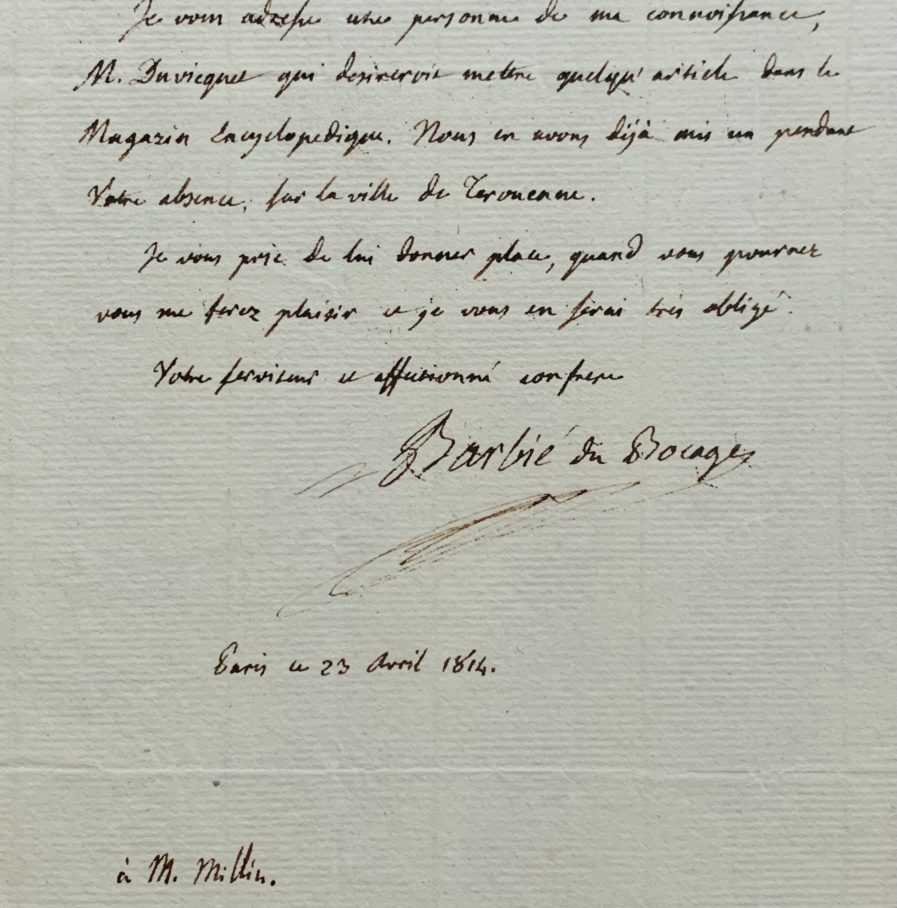 Je vous adresse une personne de ma connoissance,
M. Duvicquet qui desireroit mettre quelqu'article dans le
Magazin Encyclopedique. Nous en avons déjà mis un pendant
Votre absence, sur la ville de Terouenne.
Je vous prie de lui donner place, quand vous pourrez
vous me ferez plaisir et je vous en serai très obligé.
Votre serviteur et affectionné confrere
Barbié du Bocage
Paris ce 23 Avril 1814.
à M. Millin.